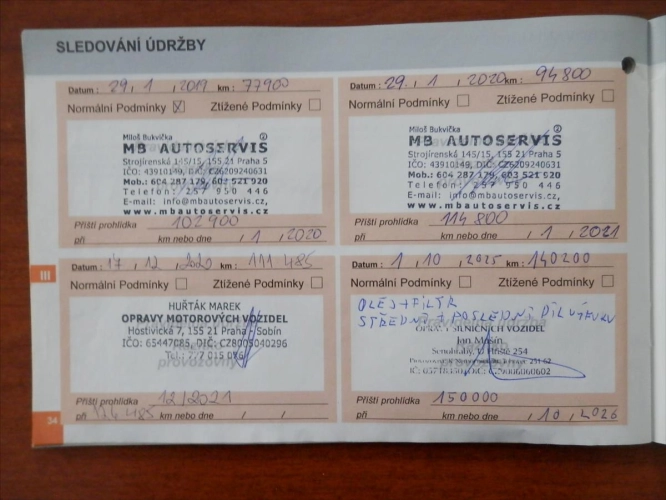 SLEDOVÁNÍ ÚDRŽBY
Datum : 29 , 1 , 2019 km : 77900
Normální Podmínky ☒ Ztížené Podmínky ☐
Miloš Bukvička
MB AUTOSERVIS
Strojírenská 145/15, 155 21 Praha 5
IČO: 43910149, DIČ: CZ6209240631
Mob.: 604 287 179, 603 521 920
Telefon: 257 950 446
E-mail: info@mbautoservis.cz
www.mbautoservis.cz
Příští prohlídka 102900
při km nebo dne / 1 / 2020
Datum : 29 , 1 , 2020 km : 94800
Normální Podmínky ☐ Ztížené Podmínky ☐
Miloš Bukvička
MB AUTOSERVIS
Strojírenská 145/15, 155 21 Praha 5
IČO: 43910149, DIČ: CZ6209240631
Mob.: 604 287 179, 603 521 920
Telefon: 257 950 446
E-mail: info@mbautoservis.cz
www.mbautoservis.cz
Příští prohlídka 114800
při km nebo dne / 1 / 2021
III
Datum : 17 , 12 , 2020 km : 111 485
Normální Podmínky ☐ Ztížené Podmínky ☐
HUŘŤÁK MAREK
OPRAVY MOTOROVÝCH VOZIDEL
Hostivická 7, 155 21 Praha - Sobín
IČO: 65447085, DIČ: CZ8009040296
Tel.: 777 015 076
provozovny
Příští prohlídka 12/2021
při 126 485 km nebo dne / /
Datum : 1 , 10 , 2025 km : 140200
Normální Podmínky ☐ Ztížené Podmínky ☐
OLEJ + FILTR
STŘEDNÍ + POSLEDNÍ DÍL VÝFUKU
OPRAVY SILNIČNÍCH VOZIDEL
Jan Mašín
Senohraby, 254
provozovny
Příští prohlídka 150000
při km nebo dne / 10 / 2026
34